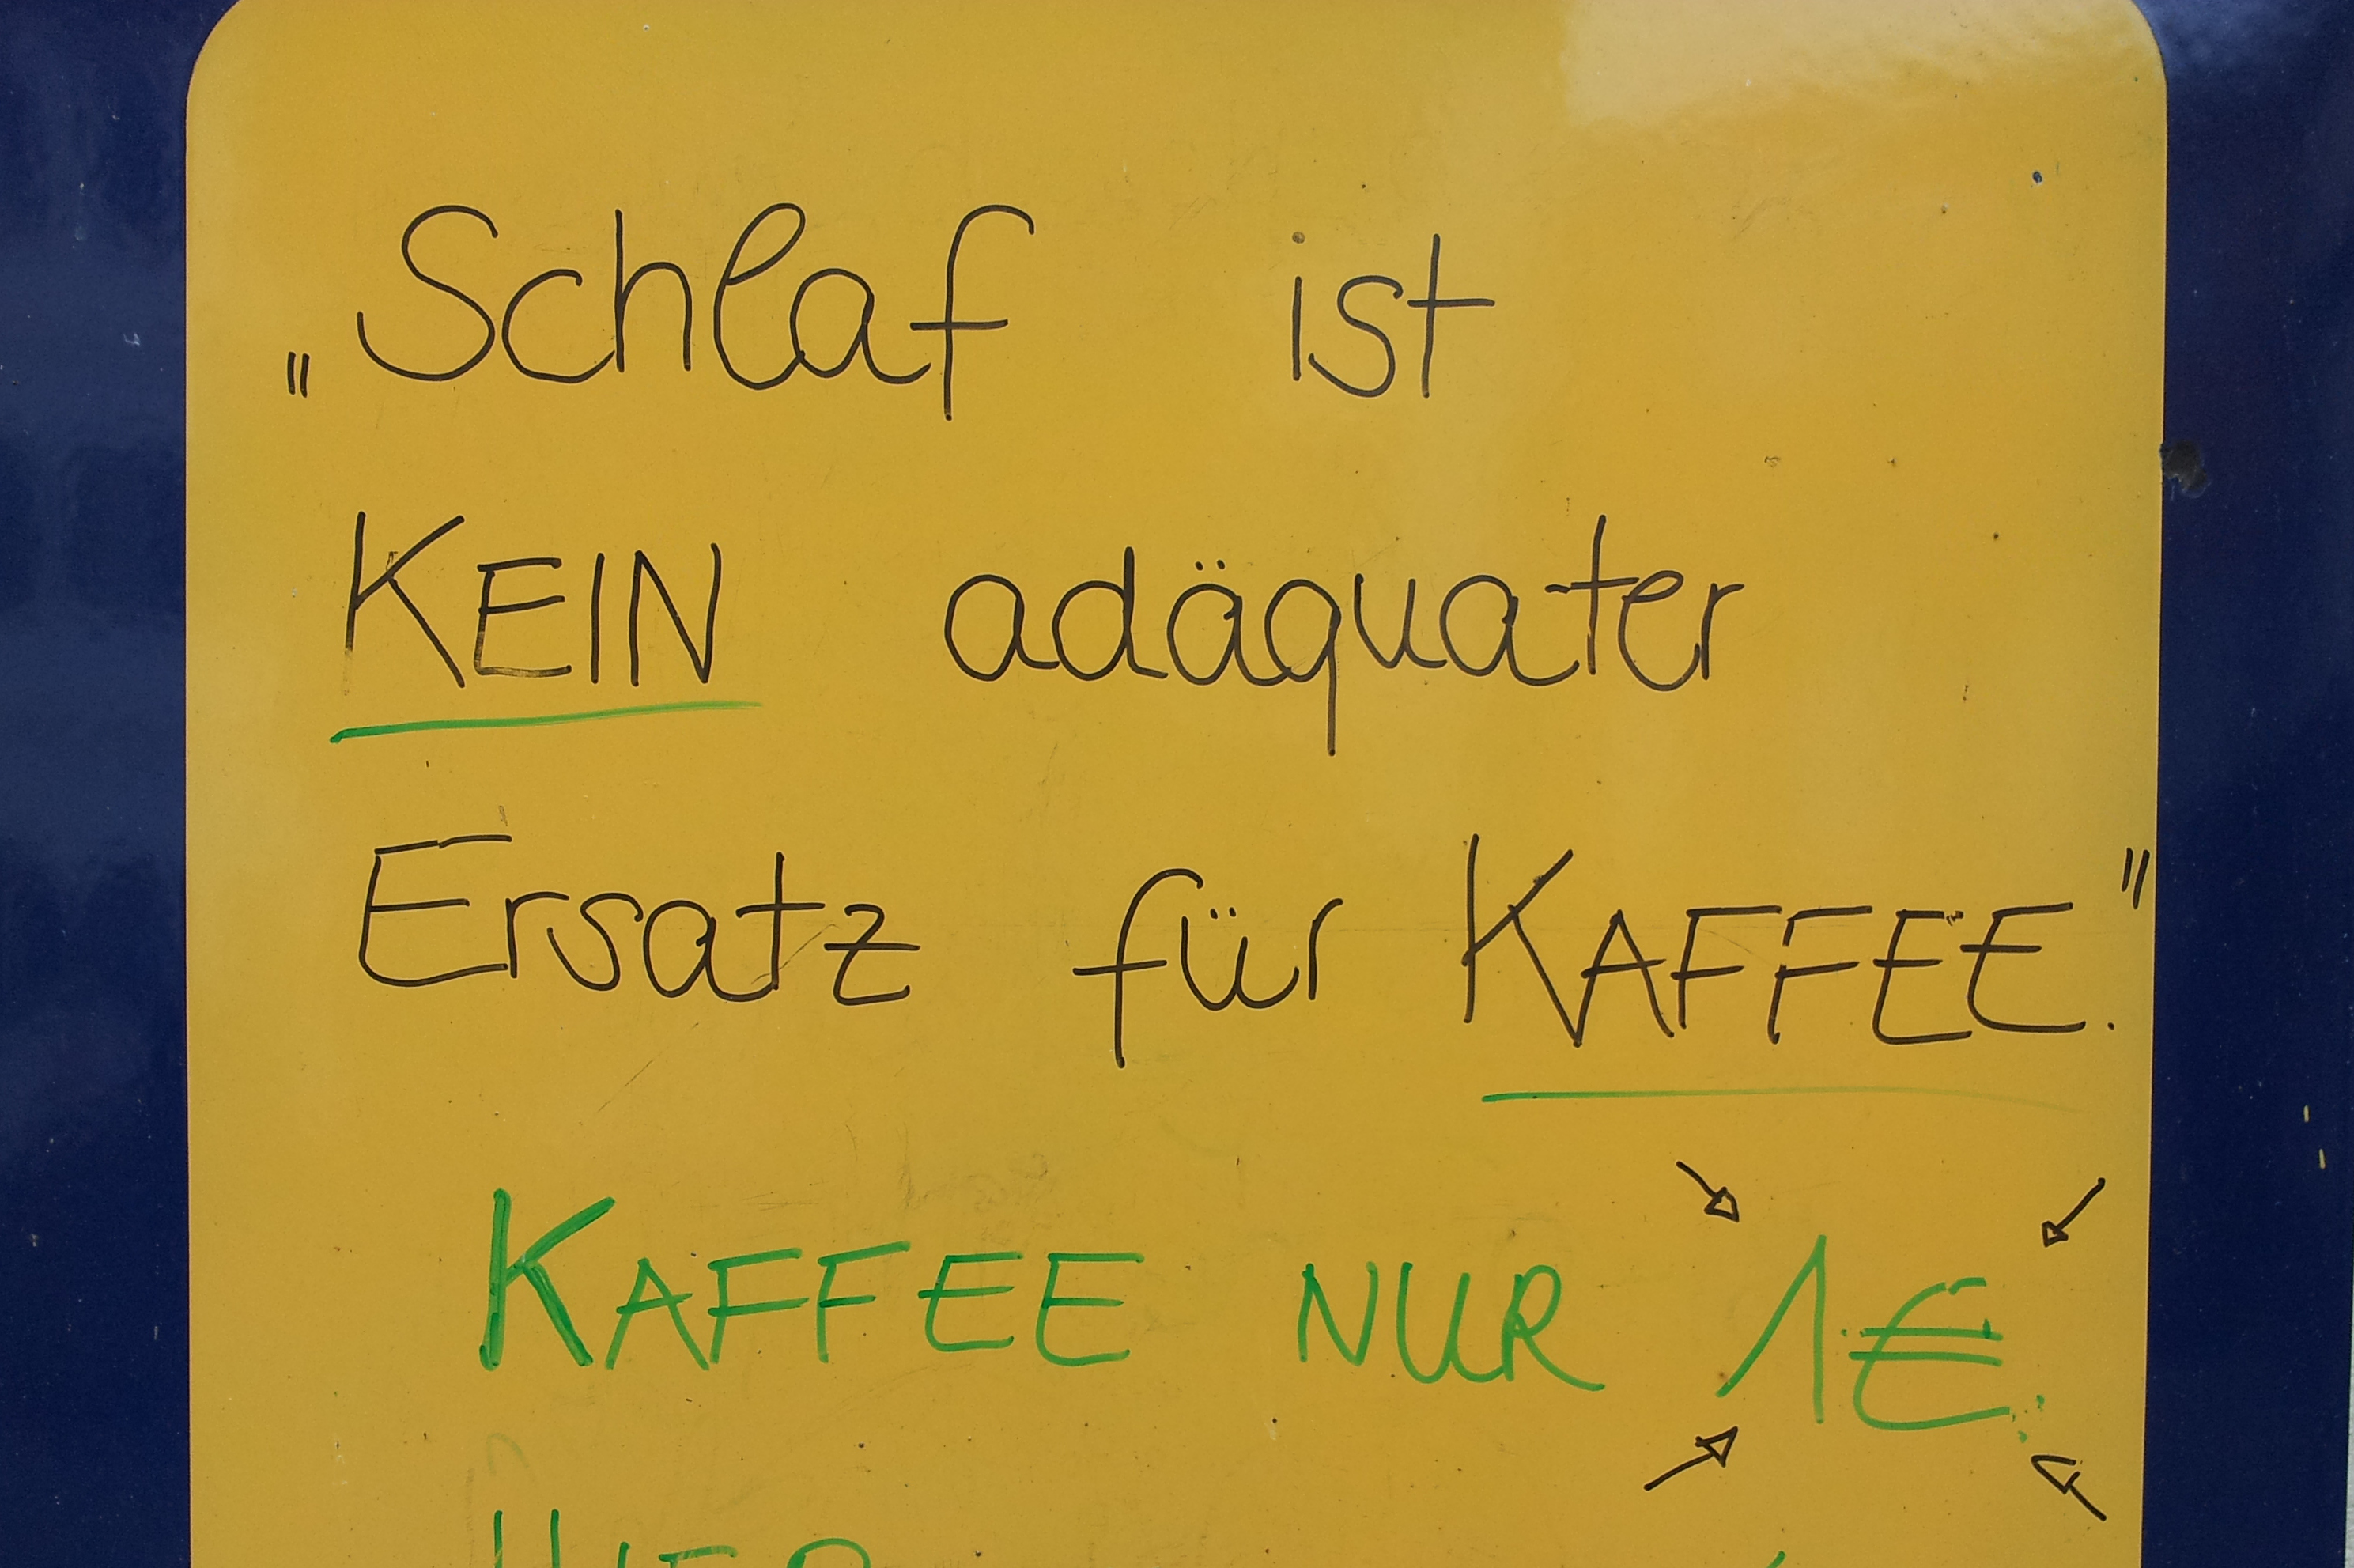 „Schlaf ist
KEIN adäquater
Ersatz für KAFFEE."
KAFFEE NUR 1€.
HIER